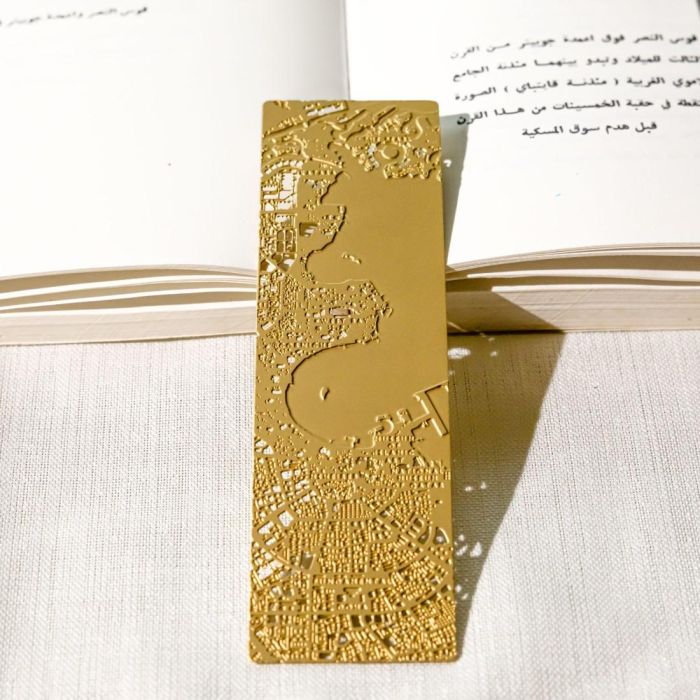 قوس النصر واعمدة جوبيتر
قوس النصر فوق اعمدة جوبيتر من القرن
الثالث للميلاد وتبدو بينهما مئذنة الجامع
لاموي الغربية ( مئذنة قايتباي ) الصورة
في حقبة الخمسينات من هذا القرن
قبل هدم سوق المسكية